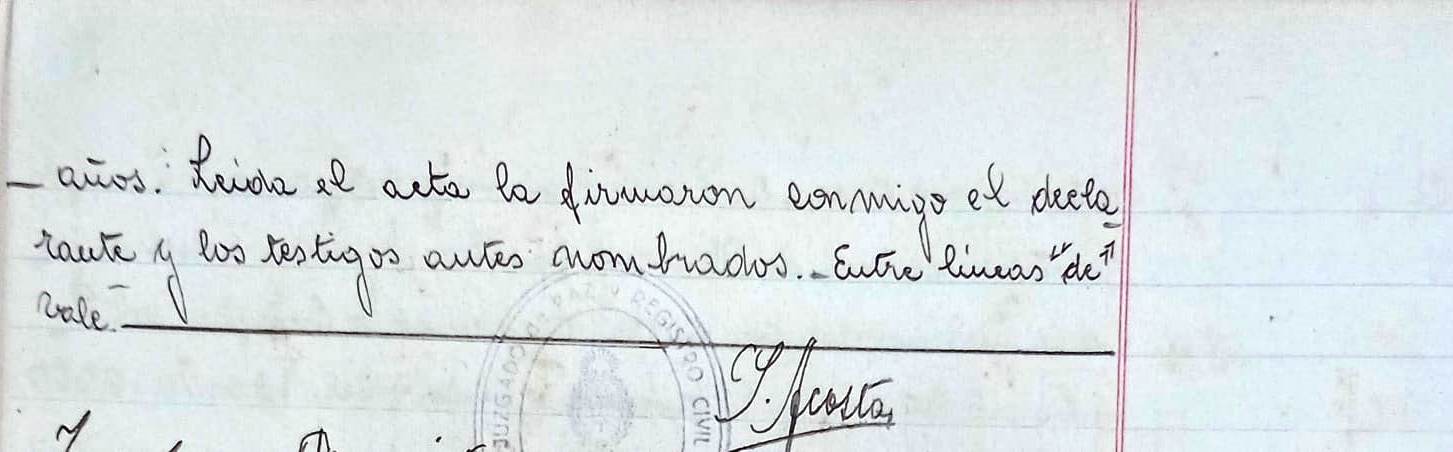 — años. Leida el acta la firmaron conmigo el decla-
rante y los testigos antes nombrados.- Entre lineas "de"
vale.—
JUZGADO DE PAZ Y REGISTRO CIVIL
J. Acosta